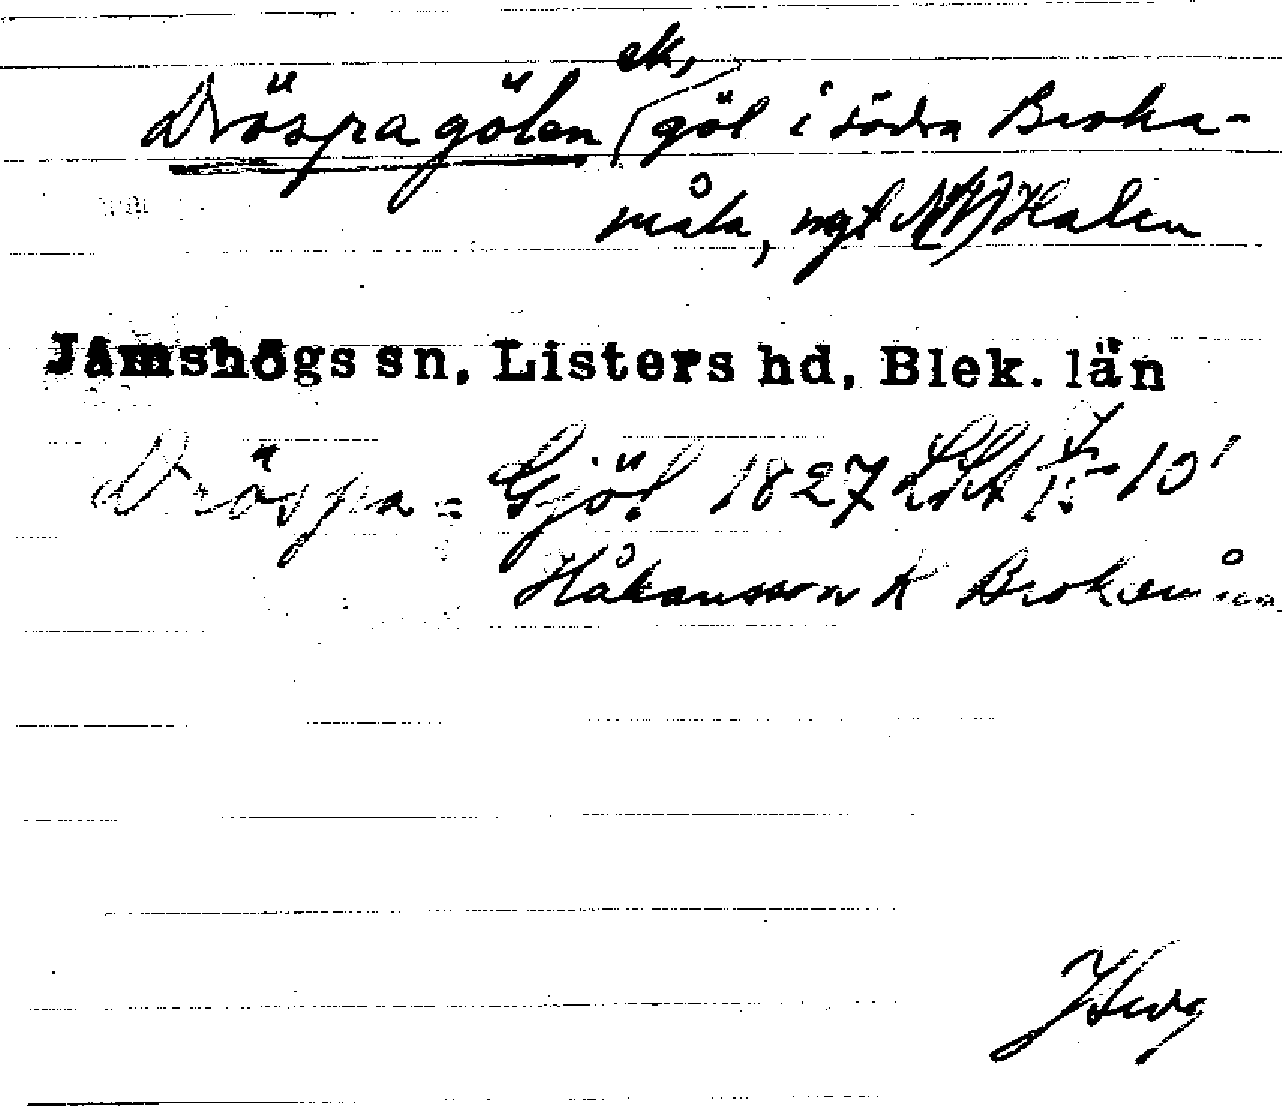 Dröspagölen ek, göl i södra Broka-
måla, ngt NV Halen
Jämshögs sn, Listers hd, Blek. län
Dröspa = Gjöl 1827 LSA 10'
Håkansson K Brokamåla